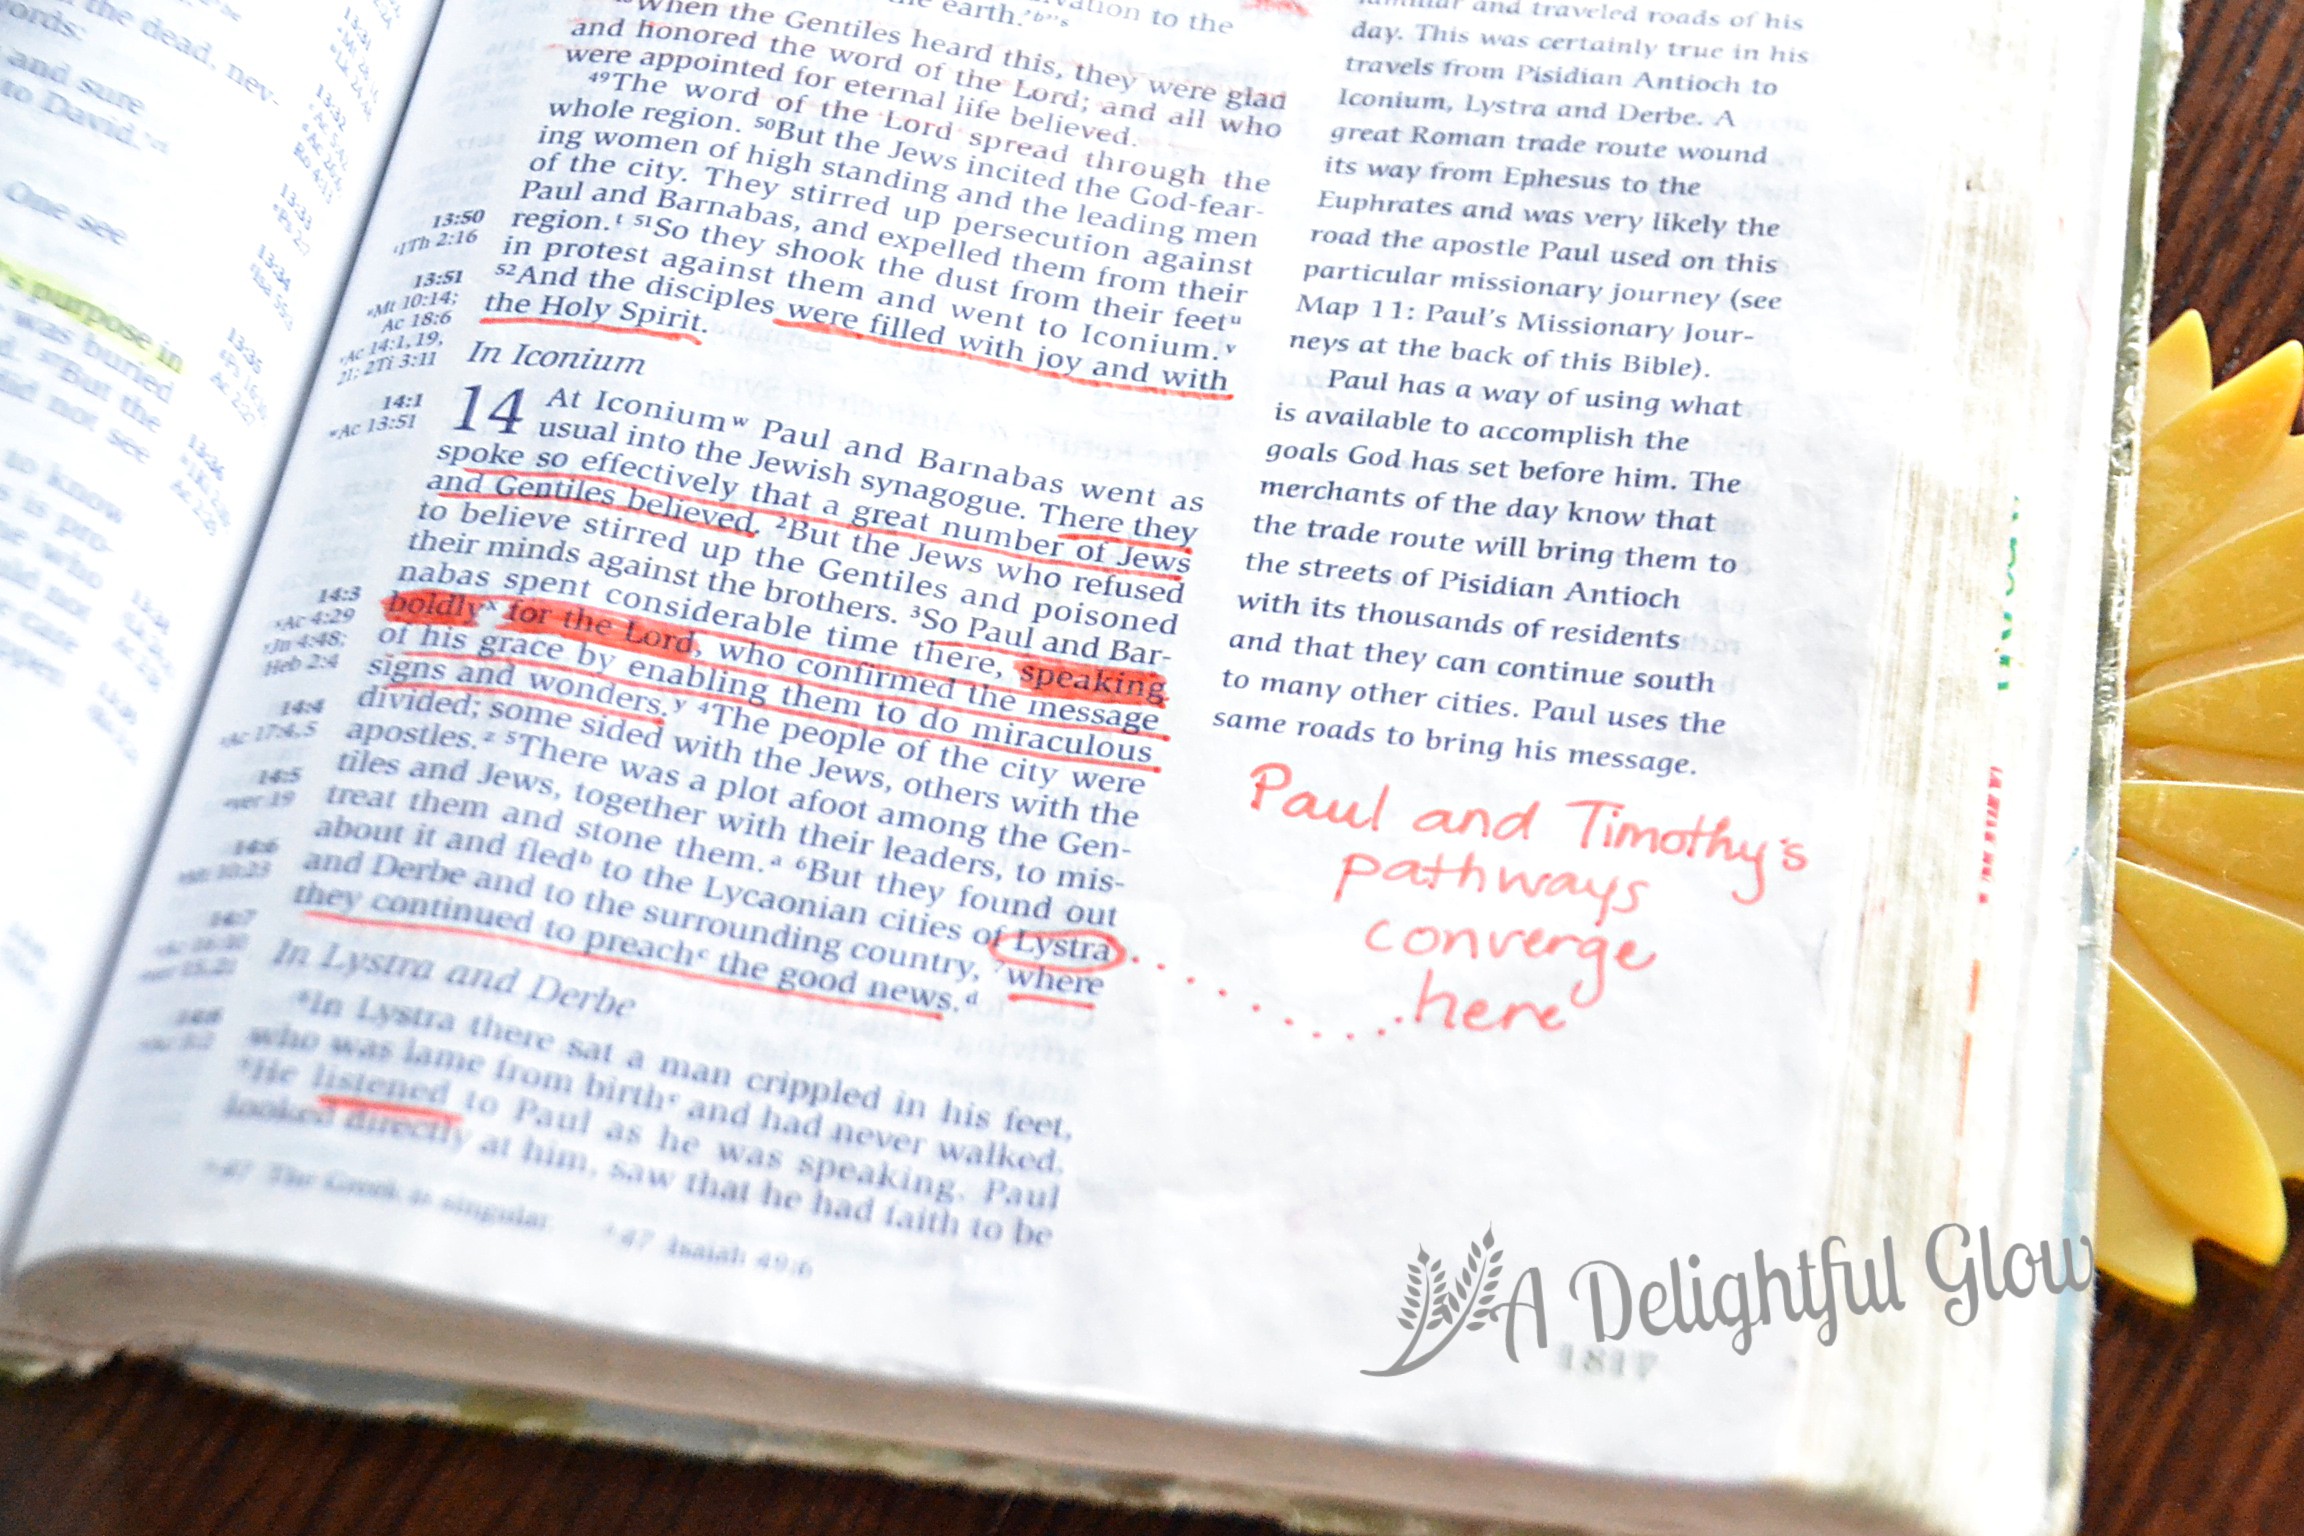 ords:
the dead, nev-
and sure
to David.'
One see
's purpose in
was buried
d. But the
did not see
to know
is pro-
e who
ould not
13:31
13:32
13:33
13:34
13:35
13:36
earth.'
vation to the
When the Gentiles heard this, they were glad
and honored the word of the Lord; and all who
were appointed for eternal life believed.
49The word of the Lord spread through the
whole region. 50But the Jews incited the God-fear-
ing women of high standing and the leading men
of the city. They stirred up persecution against
Paul and Barnabas, and expelled them from their
region.t 51So they shook the dust from their feetu
in protest against them and went to Iconium.v
52And the disciples were filled with joy and with
the Holy Spirit.
In Iconium
14 At Iconiumw Paul and Barnabas went as
usual into the Jewish synagogue. There they
spoke so effectively that a great number of Jews
and Gentiles believed. 2But the Jews who refused
to believe stirred up the Gentiles and poisoned
their minds against the brothers. 3So Paul and Bar-
nabas spent considerable time there, speaking
boldlyx for the Lord, who confirmed the message
of his grace by enabling them to do miraculous
signs and wonders.y 4The people of the city were
divided; some sided with the Jews, others with the
apostles.z 5There was a plot afoot among the Gen-
tiles and Jews, together with their leaders, to mis-
treat them and stone them.a 6But they found out
about it and fledb to the Lycaonian cities of Lystra
and Derbe and to the surrounding country, 7where
they continued to preachc the good news.d
In Lystra and Derbe
8In Lystra there sat a man crippled in his feet,
who was lame from birthe and had never walked.
9He listened to Paul as he was speaking. Paul
looked directly at him, saw that he had faith to be
47 The Greek is singular. 47 Isaiah 49:6
13:50
t1Th 2:16
13:51
uMt 10:14;
Ac 18:6
vAc 14:1, 19,
21; 2Ti 3:11
14:1
wAc 13:51
14:3
xAc 4:29
yJn 4:48;
Heb 2:4
14:4
zAc 17:4,5
14:5
aver 19
14:6
bMt 10:23
14:7
14:8
and traveled roads of his
day. This was certainly true in his
travels from Pisidian Antioch to
Iconium, Lystra and Derbe. A
great Roman trade route wound
its way from Ephesus to the
Euphrates and was very likely the
road the apostle Paul used on this
particular missionary journey (see
Map 11: Paul's Missionary Jour-
neys at the back of this Bible).
Paul has a way of using what
is available to accomplish the
goals God has set before him. The
merchants of the day know that
the trade route will bring them to
the streets of Pisidian Antioch
with its thousands of residents
and that they can continue south
to many other cities. Paul uses the
same roads to bring his message.
Paul and Timothy's
pathways
converge
here
A Delightful Glow
1817